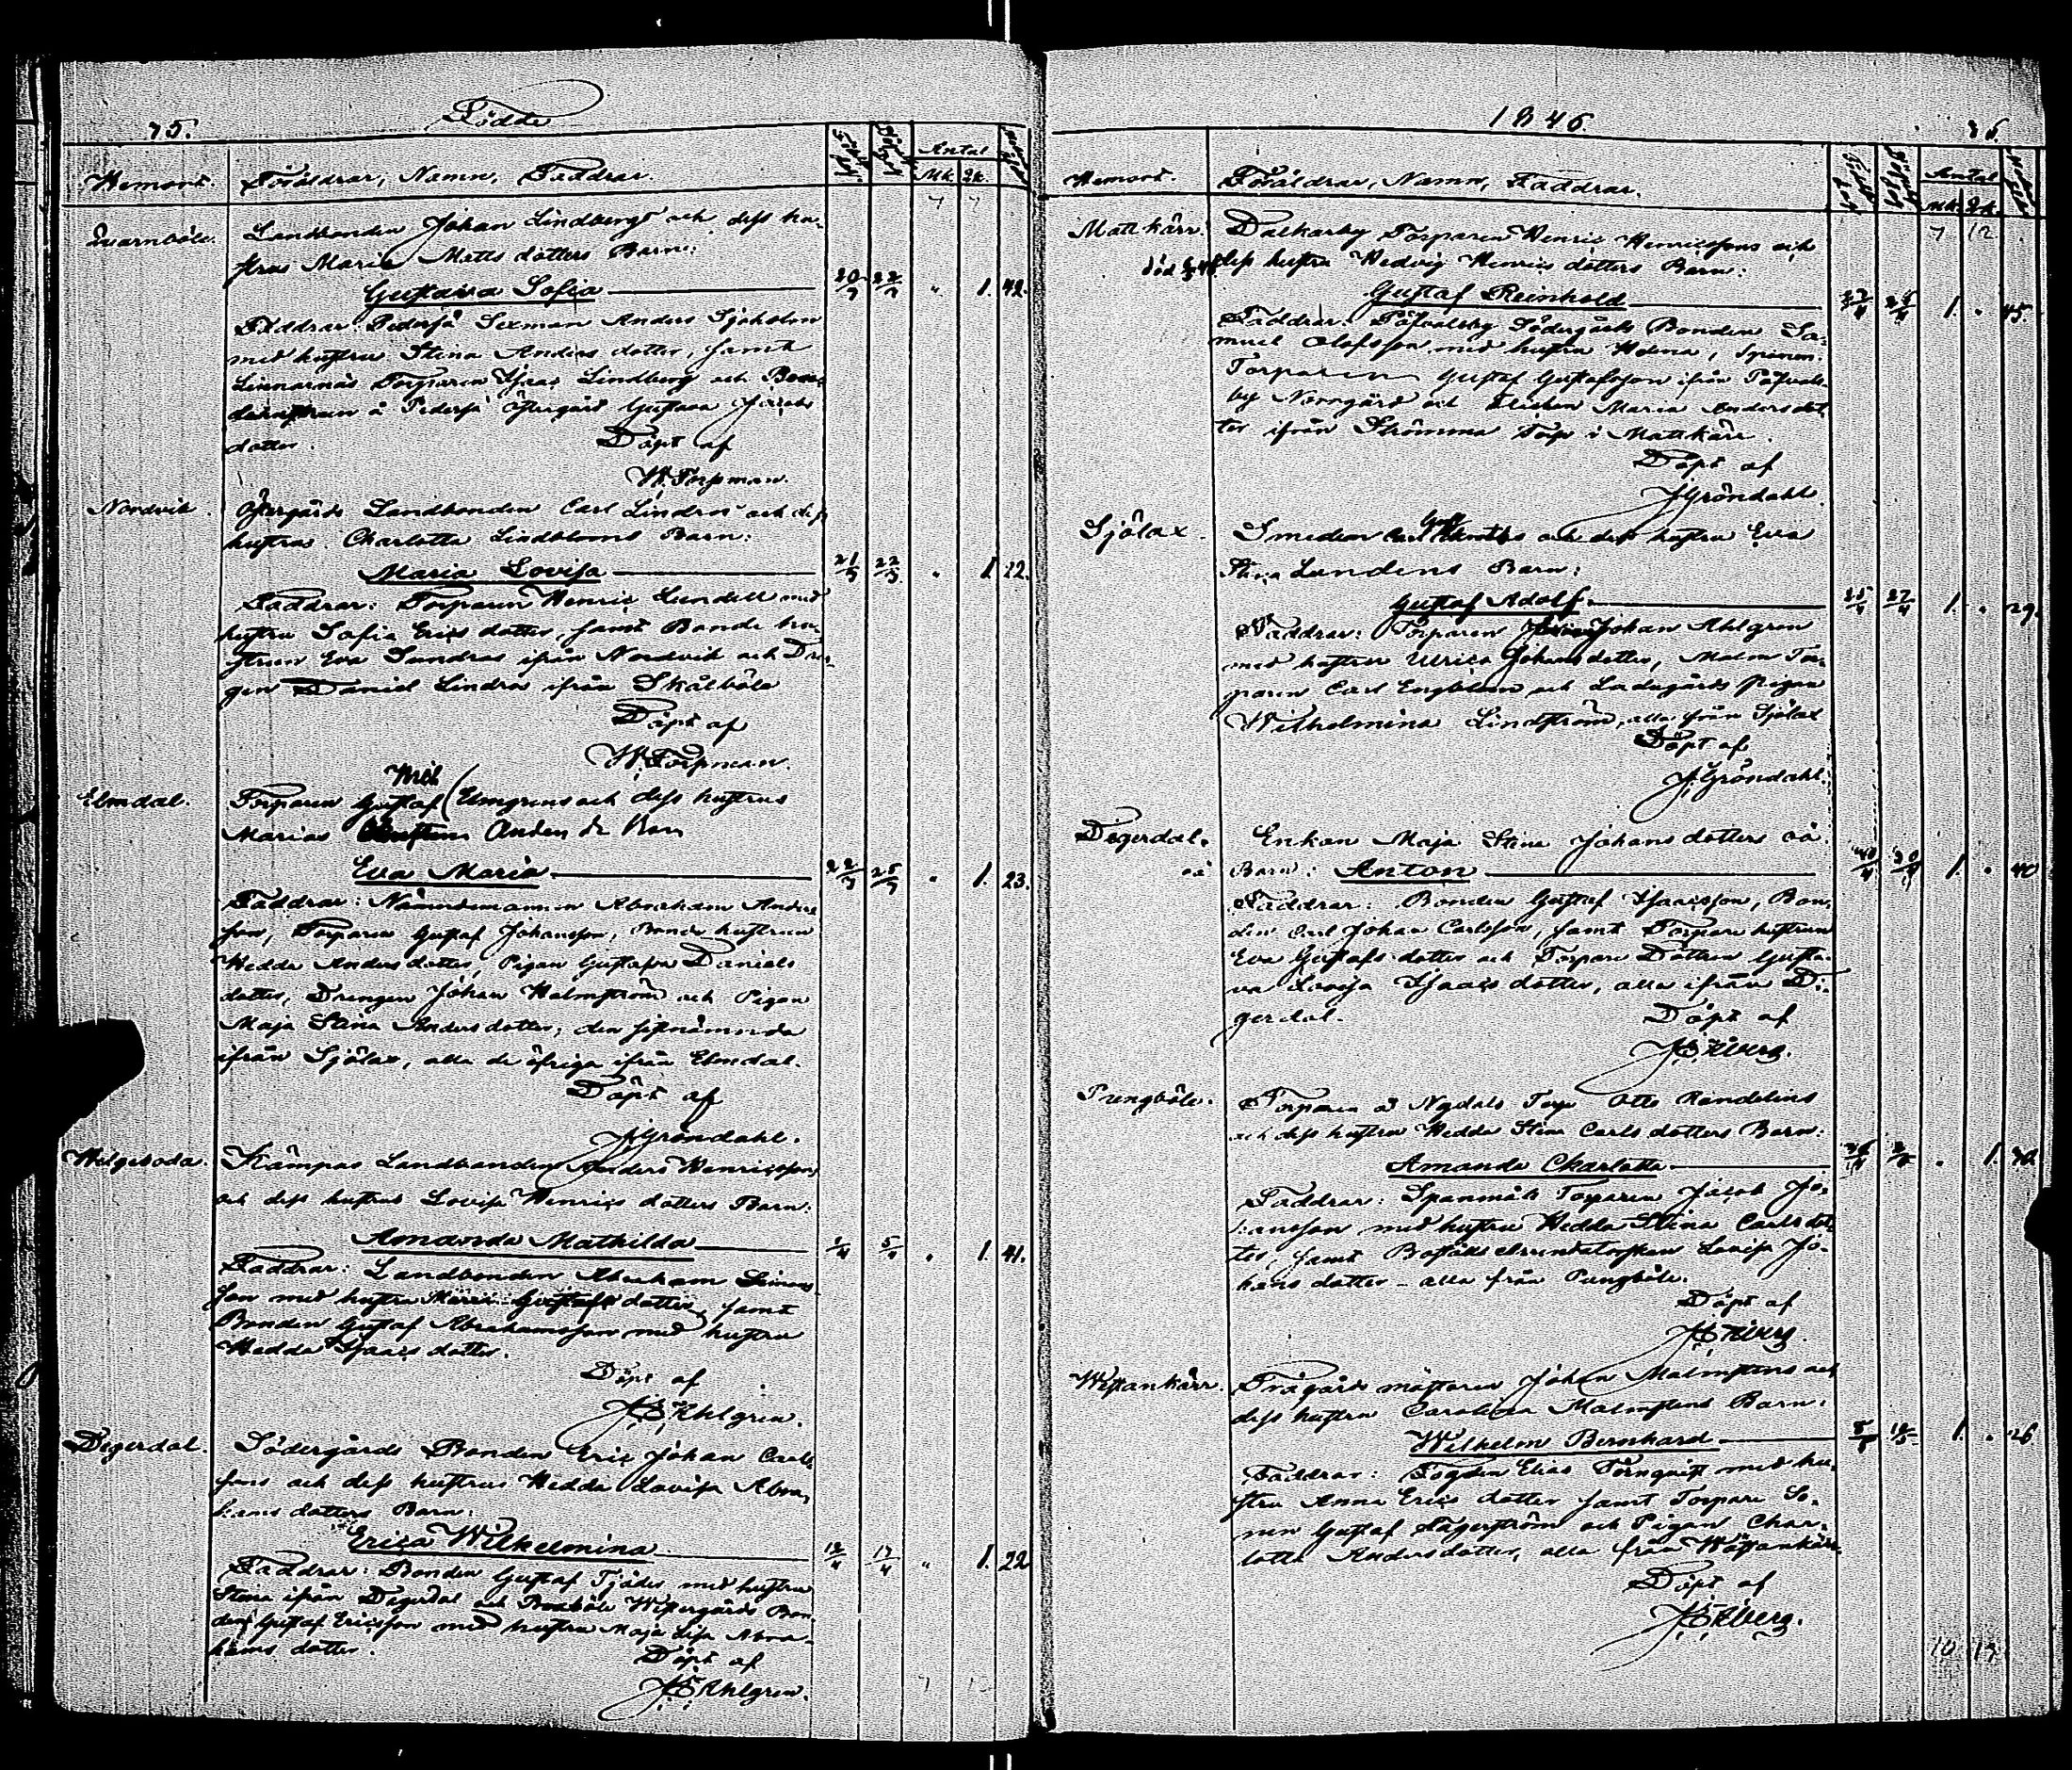 75.
Födde
Hemort. Föräldrar, Namn, Faddrar. Antal
Mk. Qk.
Qvarnböle. Landbonden Johan Lindbergs och dess hu-
strus Maria Matts dotters Barn:
Gustava Sofia 20/3 22/3 " 1. 42.
Faddrar: Pederså Sexman Anders Sjöholm
med hustru Stina Anders dotter, samt
Linnarnäs Torparen Isaac Lindberg och Bon-
dehustrun å Pederså Östergård Gustava Jacobs
dotter. Döpt af
W. Torpman.
Nordvik. Östergårds Landbonden Carl Lindros och dess
hustrus Charlotta Lindbloms Barn:
Maria Lovisa 21/3 22/3 " 1. 22.
Faddrar: Torparen Henric Lundell med
hustru Sofia Erics dotter, samt Bonde hu-
strun Eva Sundras ifrån Nordvik och Dren-
gen Daniel Lindros ifrån Skålböle
Döpt af
W. Torpman.
Elmdal. Torparen Gustaf Elmgrens och dess hustrus
Marias
Eva Maria 22/3 25/3 " 1. 23.
Faddrar: Nämndemannen Abraham Anders
son, Torparen Gustaf Johansson, Bonde hustrun
Hedda Anders dotter, Pigan Gustafva Daniels
dotter, Drengen Johan Malmström och Pigan
Maja Stina Anders dotter, den sistnämnda
ifrån Sjölax, alla de öfriga ifrån Elmdal.
Döpt af
J. Gröndahl.
Helgeboda. Kämpas Landbonden Anders Henricssons
och dess hustrus Lovisa Henrics dotters Barn:
Amanda Mathilda 1/4 5/4 " 1. 41.
Faddrar: Landbonden Abraham Simons
son med hustru Maria Gustafs dotter, samt
Bonden Gustaf Abrahamsson med hustru
Hedda Isaacs dotter.
Döpt af
Ahlgren.
Degerdal. Södergårds Bonden Eric Johan Carls
sons och dess hustrus Hedda Lovisa Abra-
hams dotters Barn:
Erica Wilhelmina 12/4 13/4 " 1. 22
Faddrar: Bonden Gustaf Tjäder med hustru
Stina ifrån Degerdal och Westergårds Bon-
den Gustaf Ericsson med hustru Maja Lisa Abra-
hams dotter.
Döpt af
Ahlgren.
1846. 76.
Hemort. Föräldrar, Namn, Faddrar. Antal
Mk. Qk.
7 12
Mattkärr. Dalkarby Torparen Henric Henricssons och
död dess hustru Hedvig Henrics dotters Barn:
Gustaf Reinhold 1. " 45.
Faddrar: Påfvalsby Södergårds Bonden Sa-
muel Olofsson med hustru Helena,
Torparen Gustaf Gustafsson ifrån Påfvals-
by Norrgård och Flickan Maria Anders dot-
ter ifrån Strömma Torp i Mattkärr.
Döpt af
J. Gröndahl.
Sjölax. Smeden och dess hustru Eva
Stina Lundens Barn:
Gustaf Adolf 25/4 27/4 1. " 29.
Faddrar: Torparen Johan Ahlgren
med hustru Ulrica Johans dotter, Malm Tor-
paren Carl Engblom och Ladugårds pigan
Wilhelmina Lindström, alla ifrån Sjölax
Döpt af
J. Gröndahl.
Degerdal. Enkan Maja Stina Johans dotters oä
oä Barn: Anton 1. " 40
Faddrar: Bonden Gustaf Isaacsson, Bon-
den Carl Johan Carlsson, samt Torpare hustrun
Eva Gustafs dotter och Torpare Dottren Gusta-
va Lovisa Isaacs dotter, alla ifrån De-
gerdal. Döpt af
Öhberg.
Pungböle. Torparen å Nydals Torp Otto Randelins
och dess hustru Hedda Stina Carls dotters Barn:
Amanda Charlotta " 1.
Faddrar: Spanmåls Torparen Jacob Jo-
hansson med hustru Hedda Stina Carls dot-
ter, samt Lovisa Jo-
hans dotter - alla från Pungböle.
Döpt af
Öhberg.
Westankärr. Trägårds mästaren Johan Malmstens och
dess hustru Carolina Malmstens Barn:
Wilhelm Bernhard 1. " 26.
Faddrar: Fogden Elias Törnqvist med hu-
stru Anna Erics dotter samt Torpare So-
nen Gustaf Fagerström och Pigan Char-
lotta Anders dotter, alla från Westankärr.
Döpt af
Öhberg.